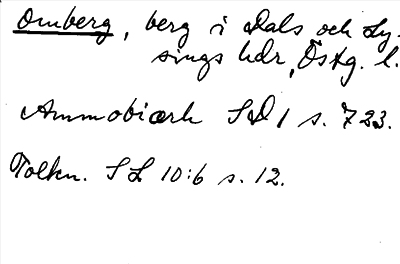 Omberg, berg i Dals och Ly-
sings hdr, Östg. l.
Ammobiærh SD 1 s. 723.
Tolkn. SL 10:6 s. 12.